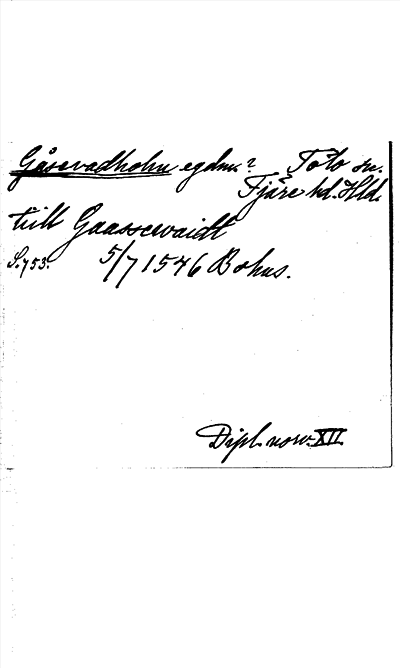 Gåsevadholm egdm.? Tölö sn.
Fjäre hd. Hld.
till Gaassewaidt
S. 753. 5/7 1546 Bohus.
Dipl. norv. XII.